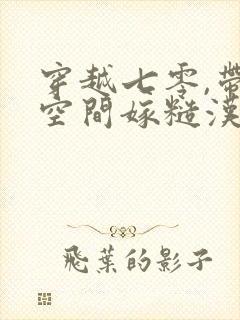 穿越七零,帶
空間嫁糙漢
飛葉的影子